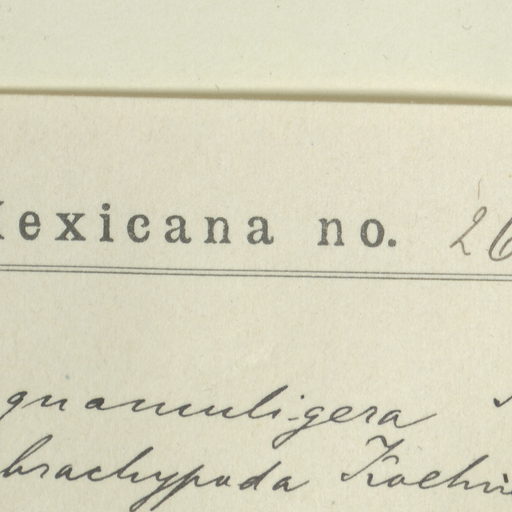 Mexicana no. 26
quamuligera
brachypoda Koehn